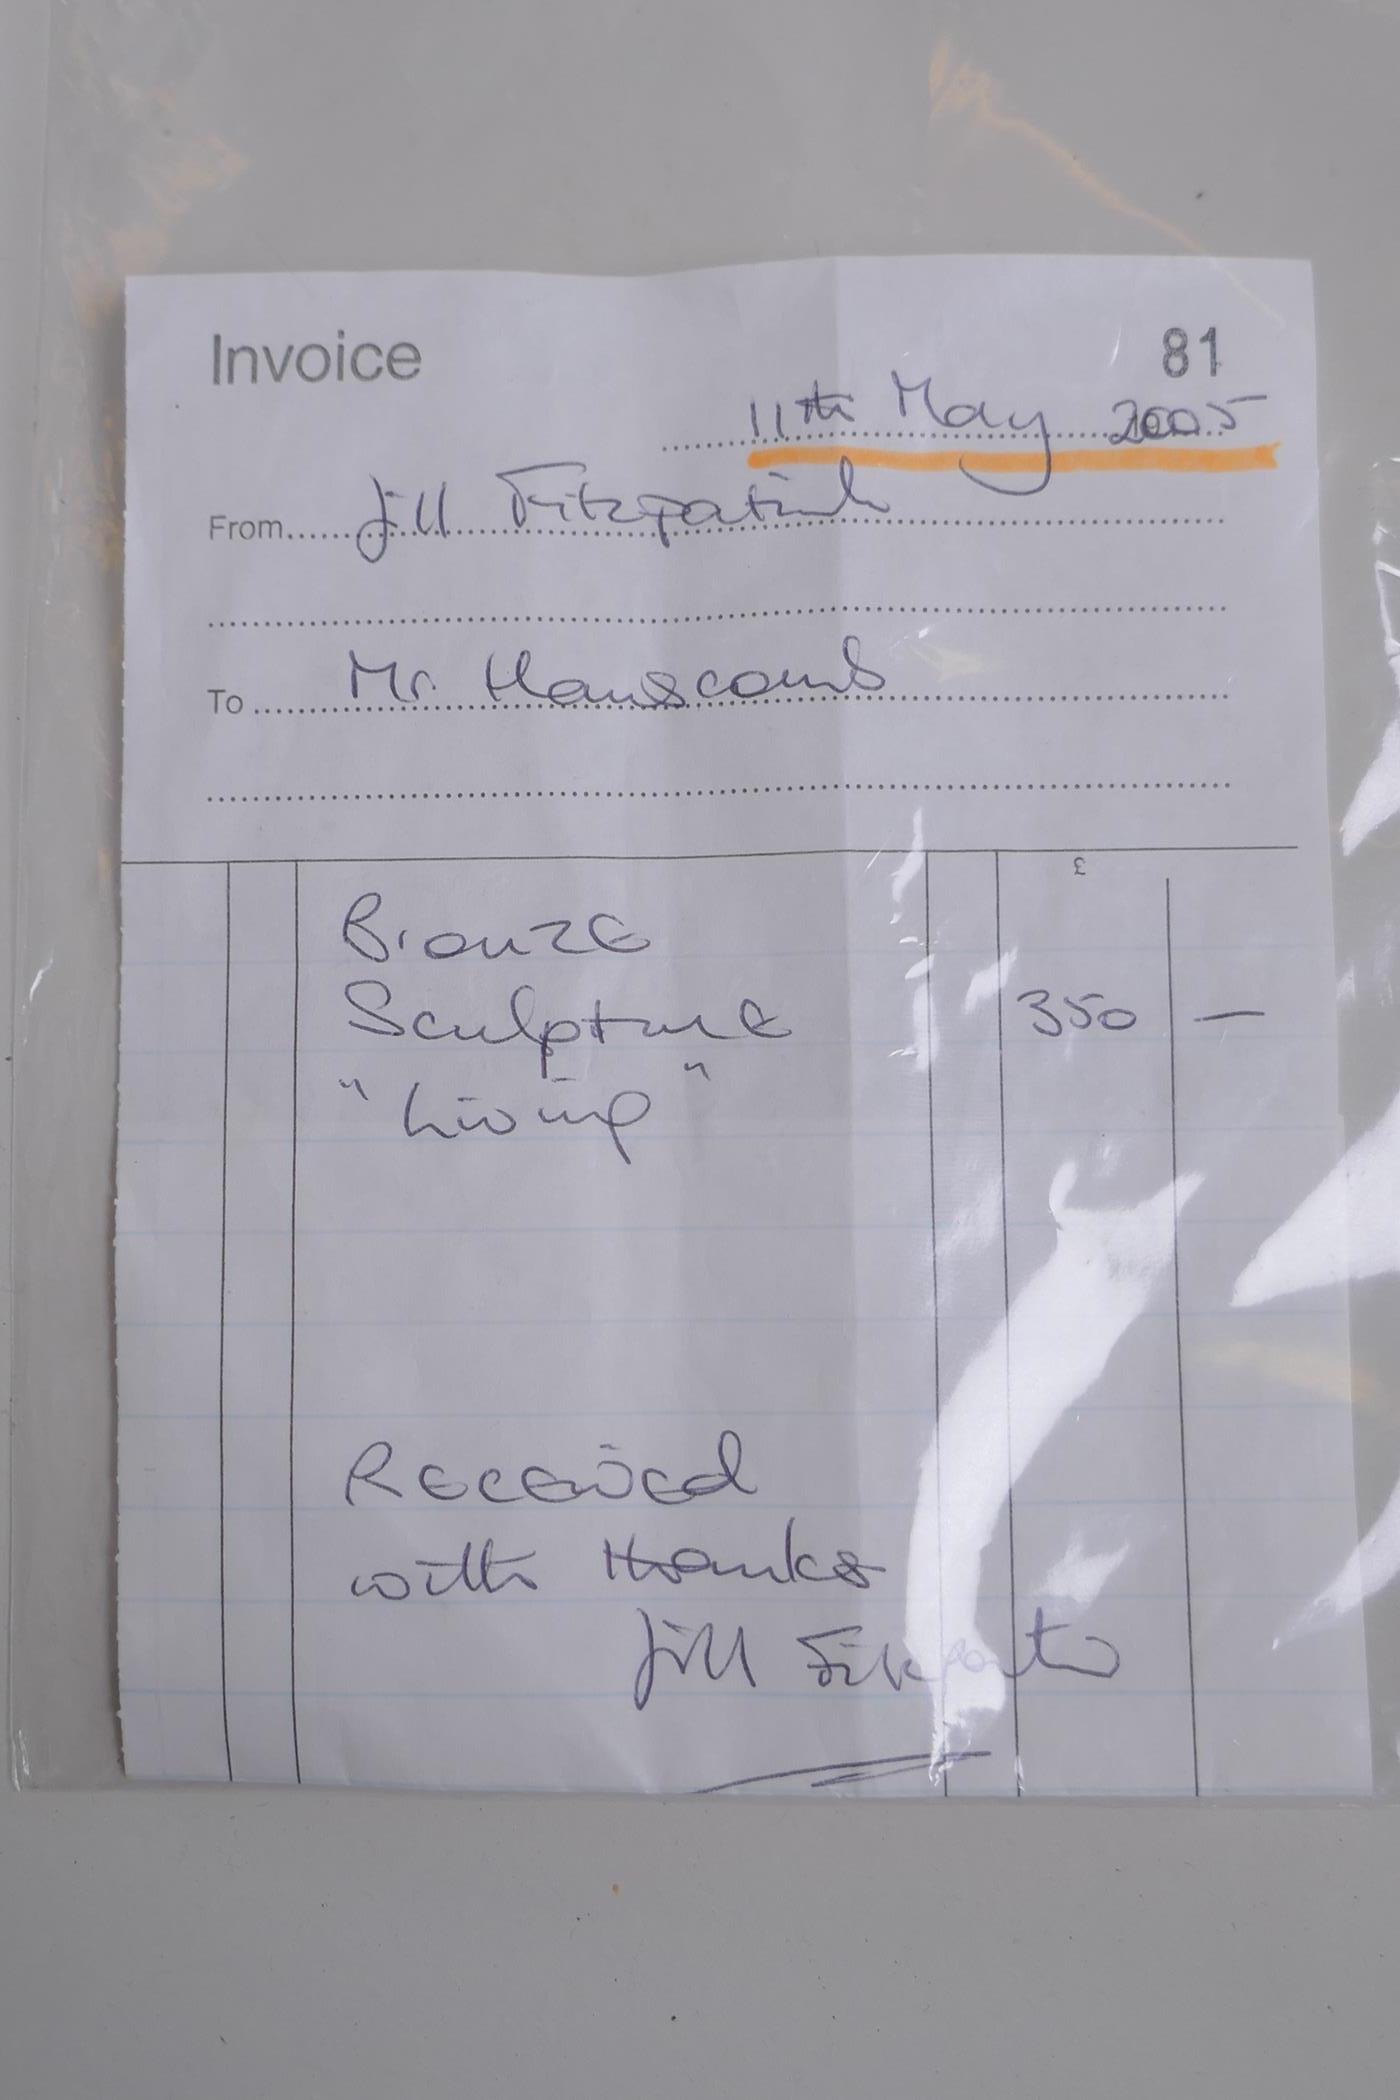 Invoice 81
11th May 2005
From Jill Fitzpatrick
To Mr. Hanscomb
£
Bronze
Sculpture 350 —
"Living"
Received
with thanks
Jill